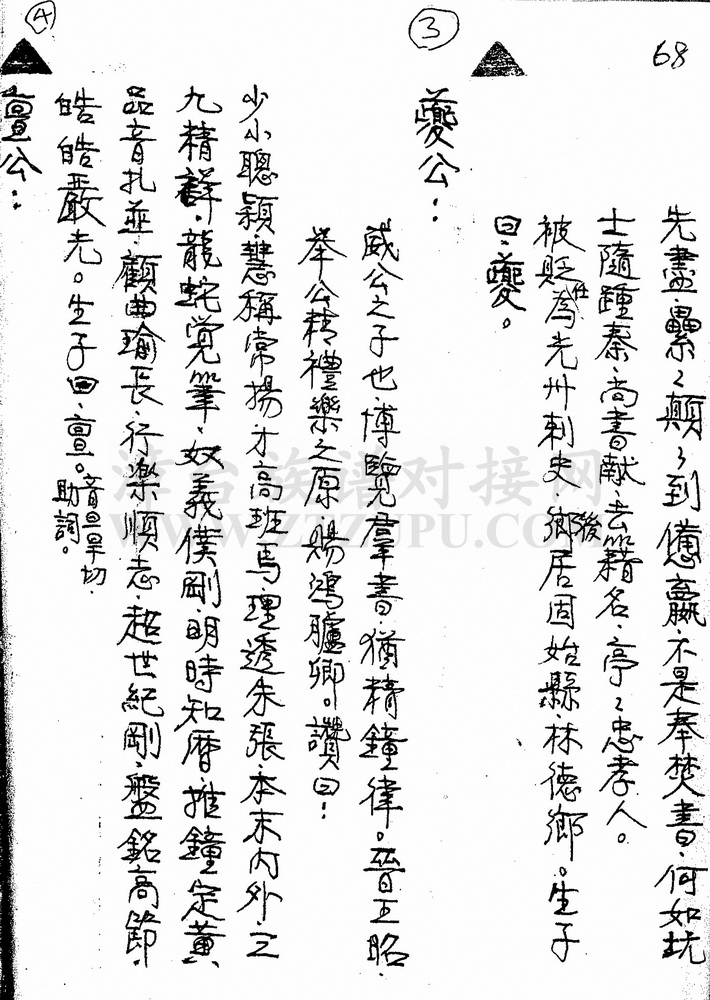 68
先盡纍々顛々到僊嬴、不是奉焚書、何如坑
士隨踵秦、尚書献去籍名、亭々忠孝人。
被貶仕為光州刺史、後鄉居固始縣、林德鄉。生子
曰、夔。
③
夔公：
威公之子也、博覽羣書、猶精鐘律。晉王昭、
举公精禮樂之原、賜鴻臚卿。讚曰：
少小聰穎、慧稱常揚、才高班馬、理透朱張、本末内外、之
九精詳、龍蛇覚筆、奴義僕剛、明時知曆、推鐘定黃、
品音扎並、顧曲瑜長、行樂順志、超世紀剛、盤銘高節、
皓皓嚴光。生子曰、亶。音亶旱切、
助詞。
④
亶公：
漳台族谱对接网
WWW.ZTZUPU.COM